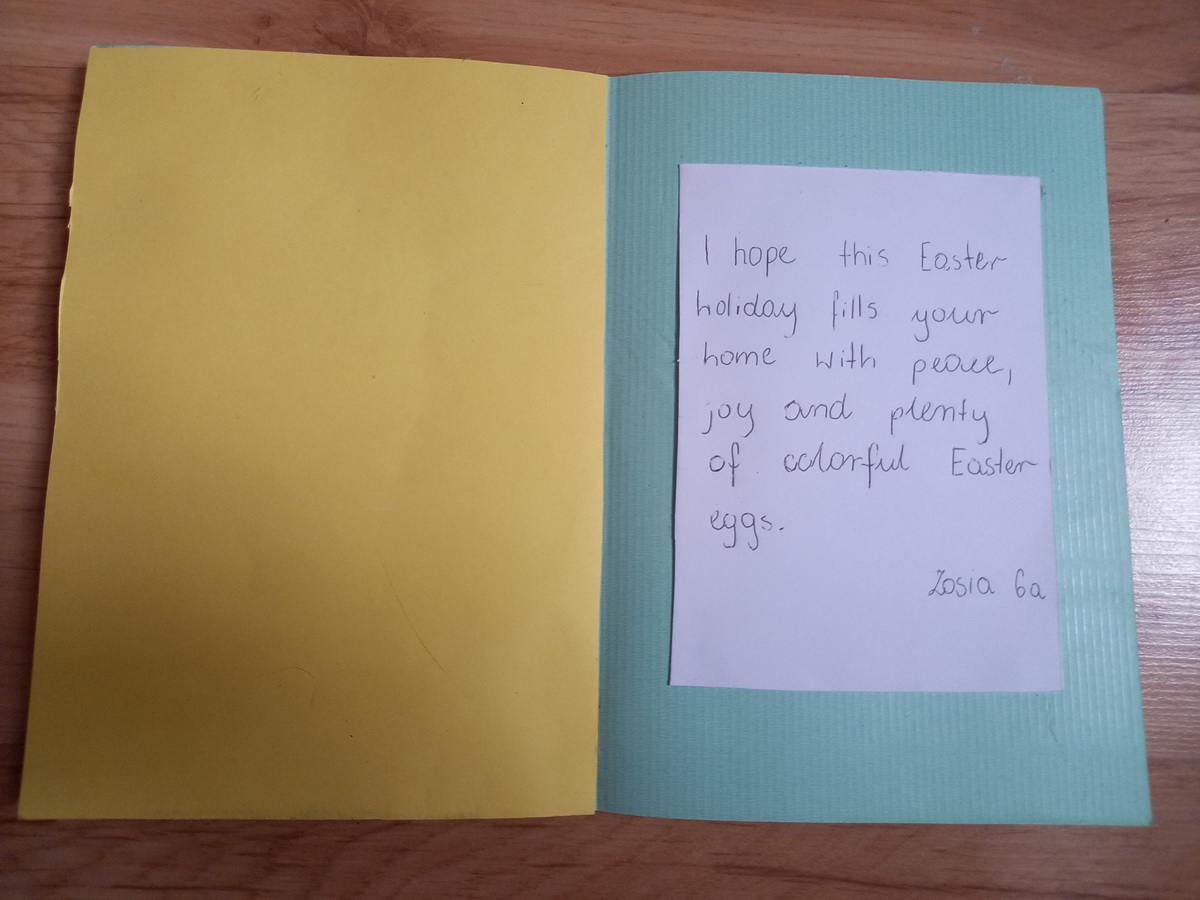 I hope this Easter
holiday fills your
home with peace,
joy and plenty
of colorful Easter
eggs.
Zosia 6a